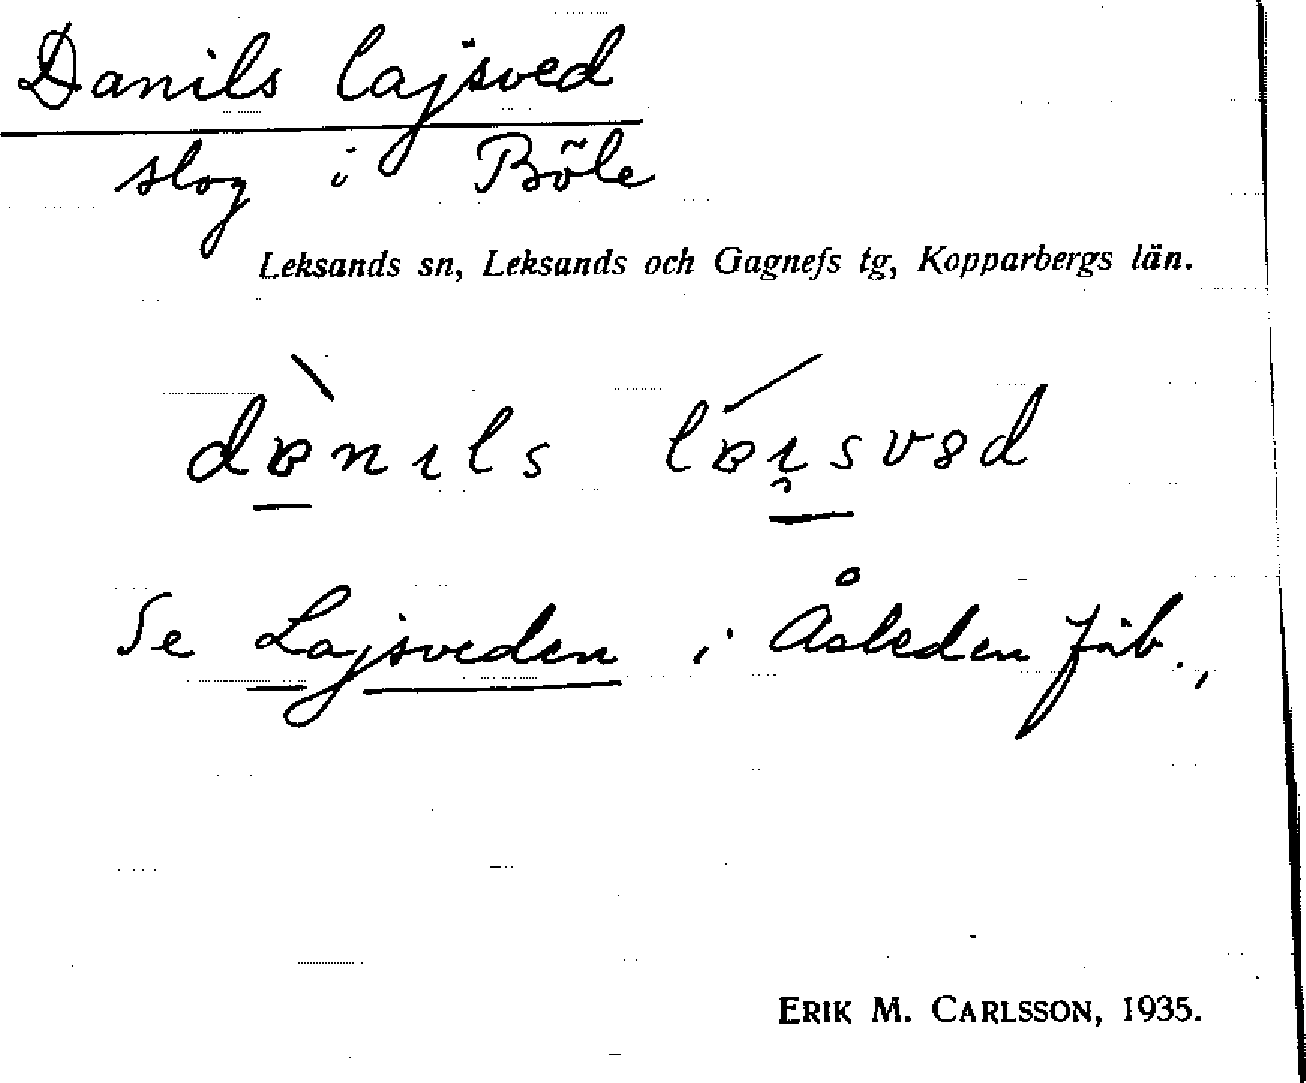 Danils Lajsved
slog i Böle
Leksands sn, Leksands och Gagnefs tg, Kopparbergs län.
dɐ̀nɪls lɐ́ɪ̯svɐd
Se Lajsveden i Åsleden fäb.,
ERIK M. CARLSSON, 1935.